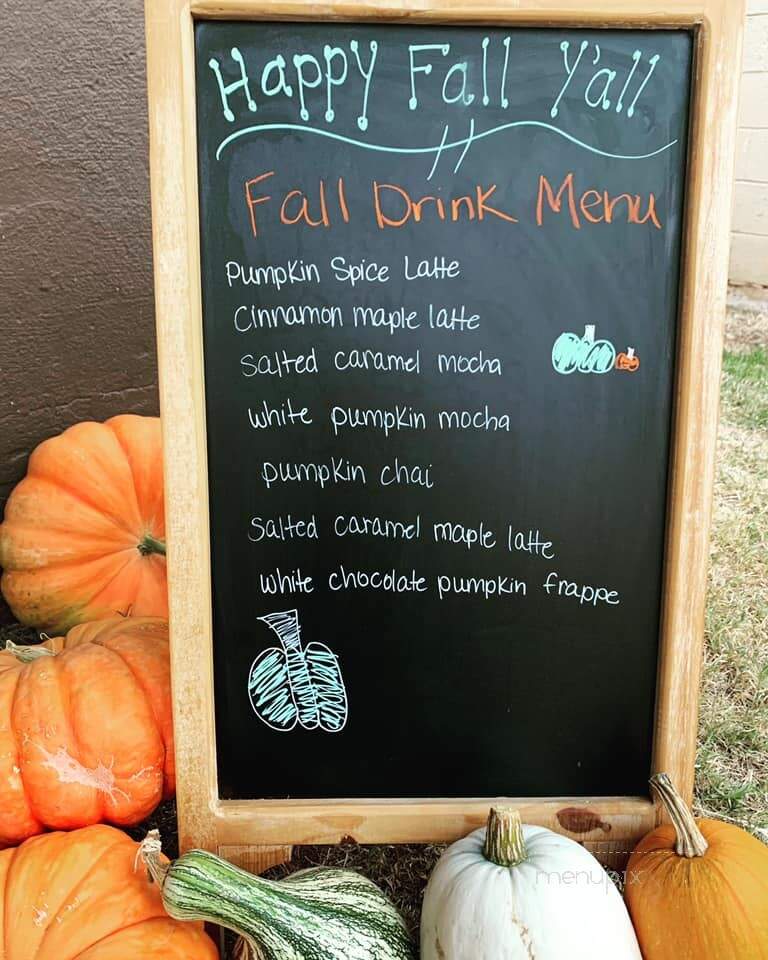 Happy Fall Y'all
Fall Drink Menu
Pumpkin Spice Latte
Cinnamon maple latte
Salted caramel mocha
white pumpkin mocha
pumpkin chai
Salted caramel maple latte
white chocolate pumpkin frappe
menupix